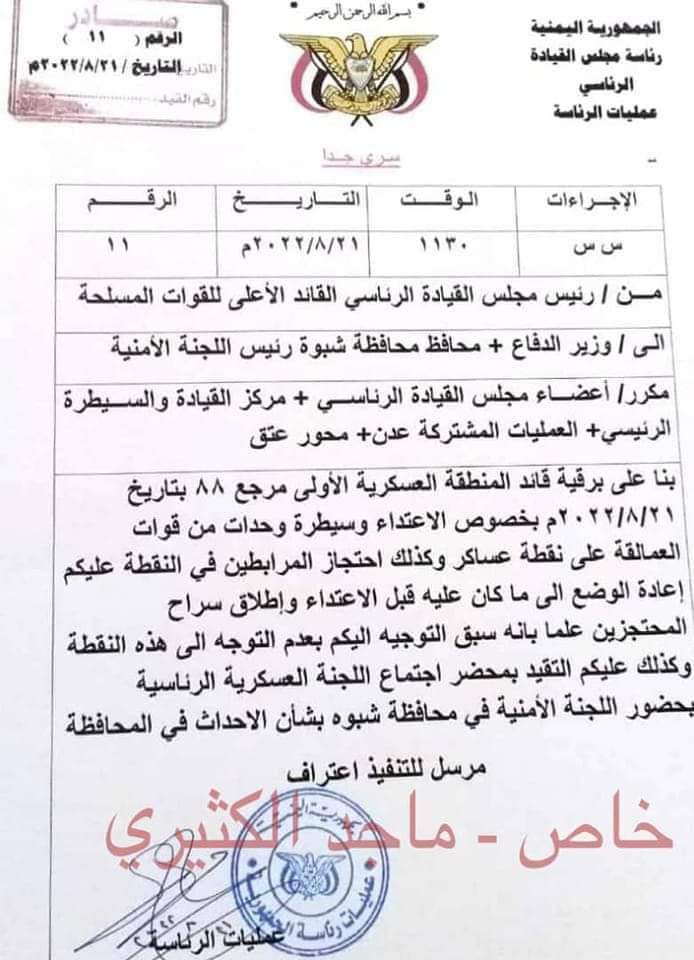 بسم الله الرحمن الرحيم
الجمهورية اليمنية
رئاسة مجلس القيادة
الرئاسي
عمليات الرئاسة
صادر
الرقم ( ١١ )
التاريخ / ٢٠٢٢/٨/٢١م
رقم القيد
سري جدا
الإجراءات الوقت التاريخ الرقم
س س ١١٣٠ ٢٠٢٢/٨/٢١م ١١
من / رئيس مجلس القيادة الرئاسي القائد الأعلى للقوات المسلحة
الى / وزير الدفاع + محافظ محافظة شبوة رئيس اللجنة الأمنية
مكرر/ أعضاء مجلس القيادة الرئاسي + مركز القيادة والسيطرة
الرئيسي+ العمليات المشتركة عدن+ محور عتق
بنا على برقية قائد المنطقة العسكرية الأولى مرجع ٨٨ بتاريخ
٢٠٢٢/٨/٢١م بخصوص الاعتداء وسيطرة وحدات من قوات
العمالقة على نقطة عساكر وكذلك احتجاز المرابطين في النقطة عليكم
إعادة الوضع الى ما كان عليه قبل الاعتداء وإطلاق سراح
المحتجزين علما بانه سبق التوجيه اليكم بعدم التوجه الى هذه النقطة
وكذلك عليكم التقيد بمحضر اجتماع اللجنة العسكرية الرئاسية
بحضور اللجنة الأمنية في محافظة شبوه بشأن الاحداث في المحافظة
مرسل للتنفيذ اعتراف
خاص - ماجد الكثيري
عمليات رئاسة الجمهورية
عمليات الرئاسة